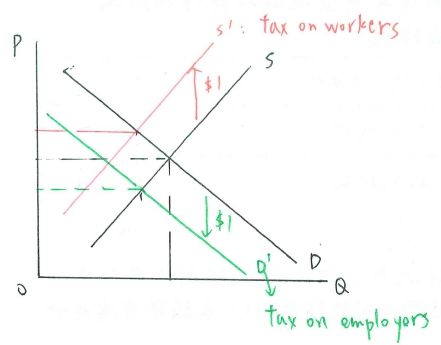 S': tax on workers
P
S
$1
$1
D' D
O
Q
tax on employers